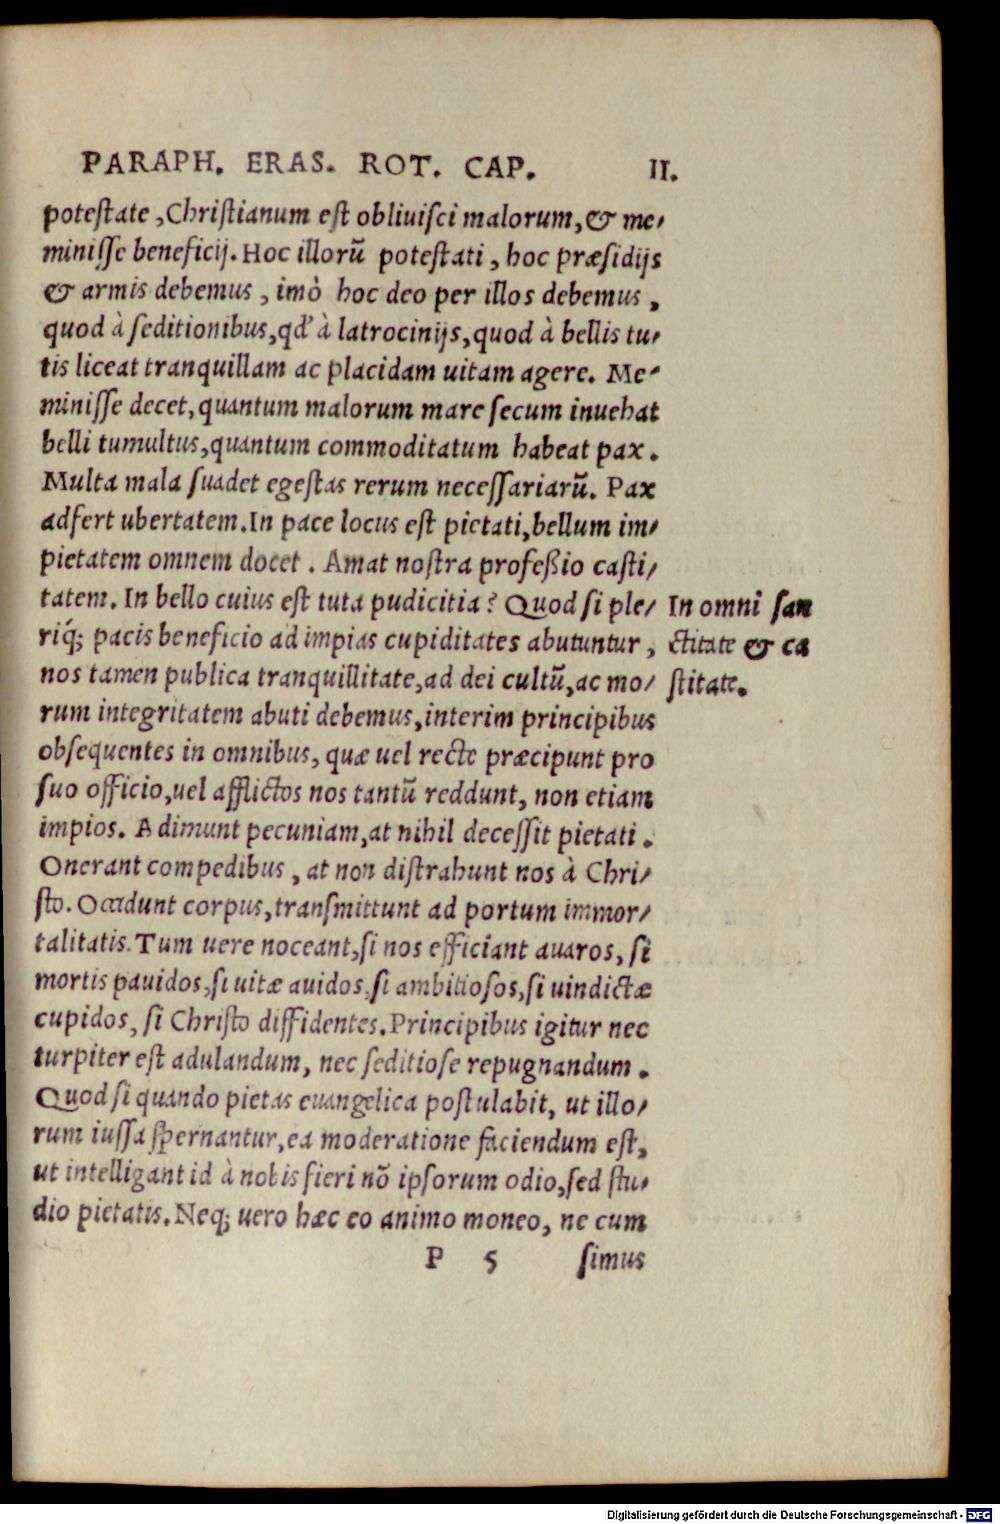 PARAPH. ERAS. ROT. CAP. II.
potestate, Christianum est obliuisci malorum, & me-
minisse beneficij. Hoc illorū potestati, hoc præsidijs
& armis debemus, imò hoc deo per illos debemus,
quod à seditionibus, qd' à latrocinijs, quod à bellis tu-
tis liceat tranquillam ac placidam uitam agere. Me-
minisse decet, quantum malorum mare secum inuehat
belli tumultus, quantum commoditatum habeat pax.
Multa mala suadet egestas rerum necessariarū. Pax
adfert ubertatem. In pace locus est pietati, bellum im-
pietatem omnem docet. Amat nostra profeßio casti-
tatem. In bello cuius est tuta pudicitia? Quod si ple-
riq́; pacis beneficio ad impias cupiditates abutuntur,
nos tamen publica tranquillitate, ad dei cultū, ac mo-
rum integritatem abuti debemus, interim principibus
obsequentes in omnibus, quæ uel recte præcipunt pro
suo officio, uel afflictos nos tantū reddunt, non etiam
impios. Adimunt pecuniam, at nihil decessit pietati.
Onerant compedibus, at non distrahunt nos à Chri-
sto. Occidunt corpus, transmittunt ad portum immor-
talitatis. Tum uere noceant, si nos efficiant auaros, si
mortis pauidos, si uitæ auidos, si ambitiosos, si uindictæ
cupidos, si Christo diffidentes. Principibus igitur nec
turpiter est adulandum, nec seditiose repugnandum.
Quod si quando pietas euangelica postulabit, ut illo-
rum iussa spernantur, ea moderatione faciendum est,
ut intelligant id à nobis fieri nō ipsorum odio, sed stu-
dio pietatis. Neq; uero hæc eo animo moneo, ne cum
P 5 simus
In omni san
ctitate & ca
stitate.
Digitalisierung gefördert durch die Deutsche Forschungsgemeinschaft - DFG